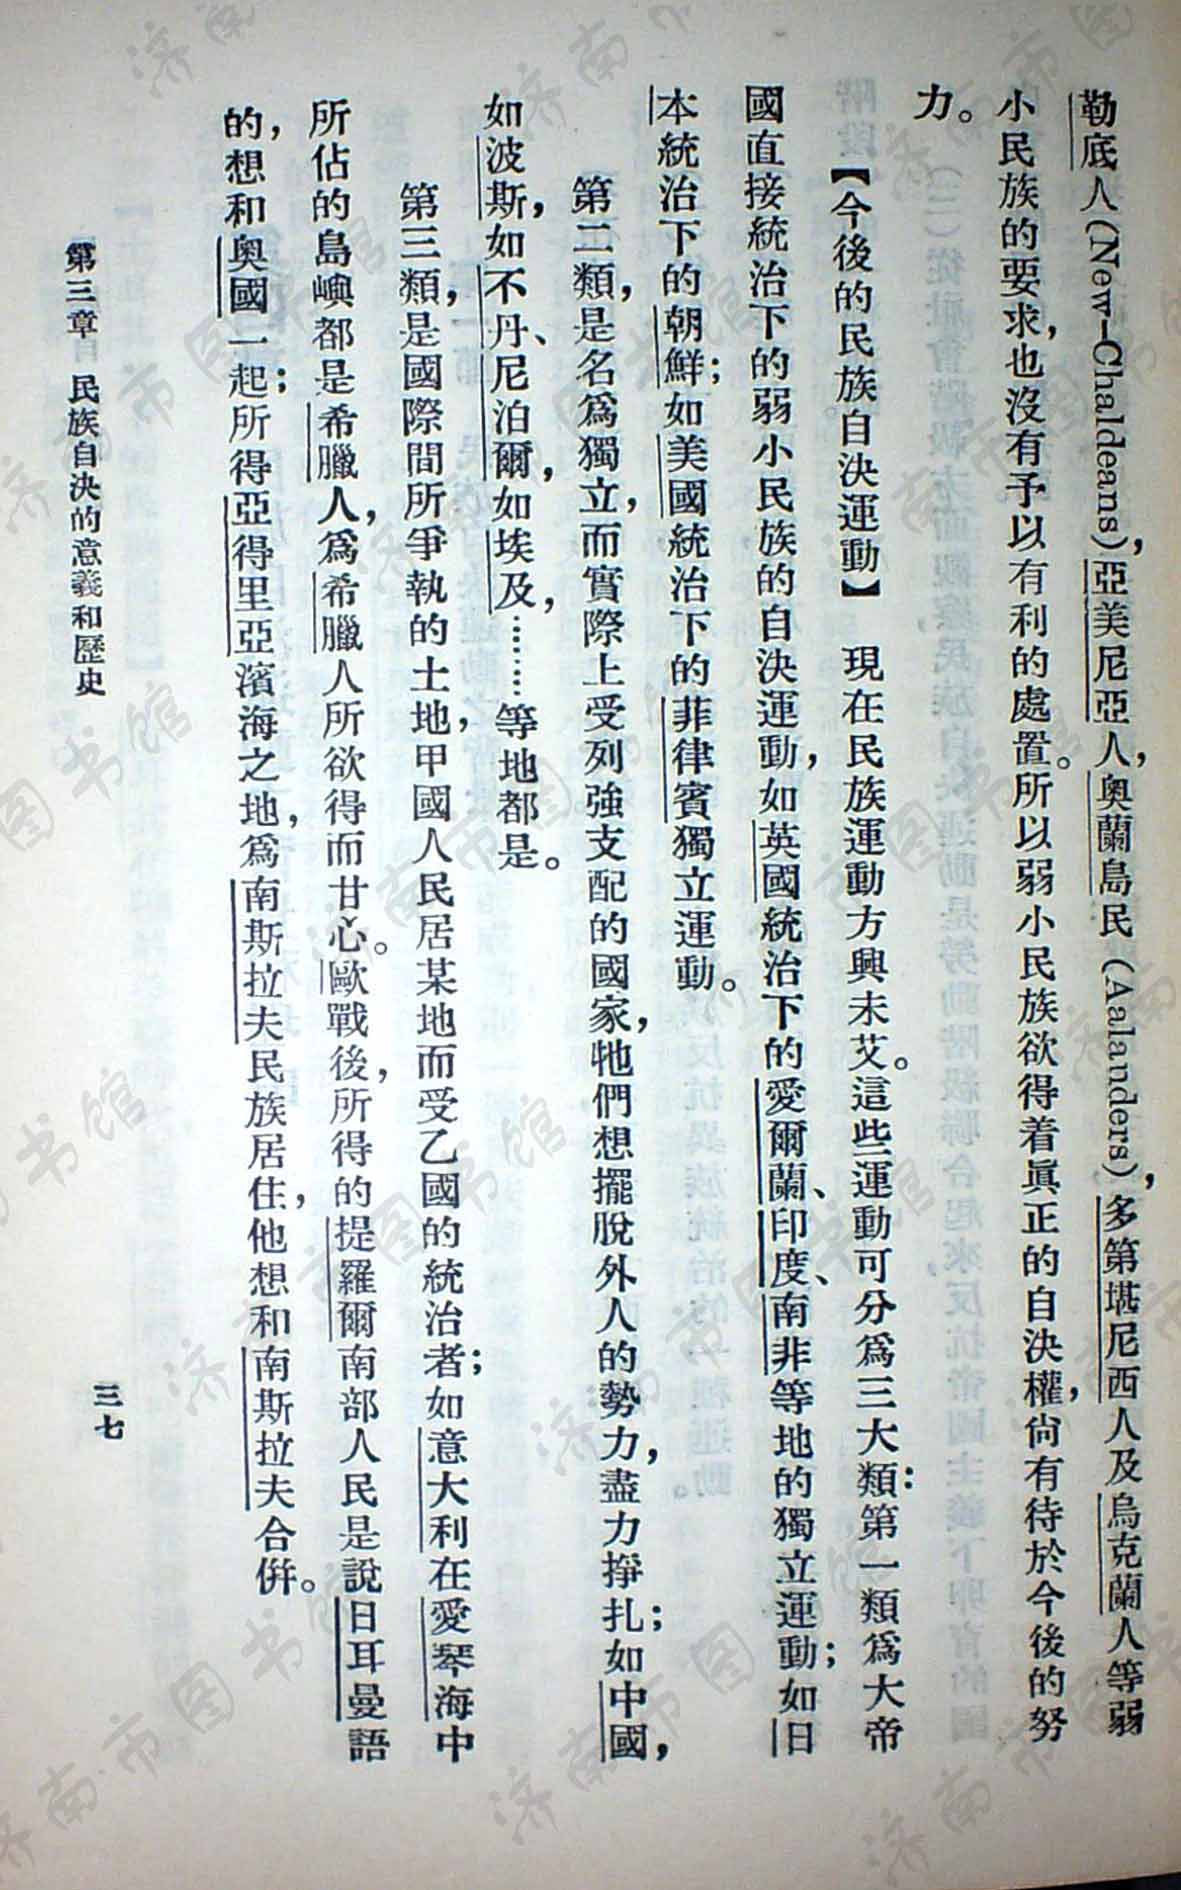 勒底人(New-Chaldeans)，亞美尼亞人，奧蘭島民(Aalanders)，多第堪尼西人及烏克蘭人等弱
小民族的要求，也沒有予以有利的處置。所以弱小民族欲得着眞正的自決權，尙有待於今後的努
力。
【今後的民族自決運動】　現在民族運動方興未艾。這些運動可分爲三大類：第一類爲大帝
國直接統治下的弱小民族的自決運動，如英國統治下的愛爾蘭、印度、南非等地的獨立運動；如日
本統治下的朝鮮；如美國統治下的菲律賓獨立運動。
第二類，是名爲獨立，而實際上受列強支配的國家，牠們想擺脫外人的勢力，盡力掙扎；如中國，
如波斯，如不丹、尼泊爾，如埃及，………等地都是。
第三類，是國際間所爭執的土地，甲國人民居某地而受乙國的統治者；如意大利在愛琴海中
所佔的島嶼都是希臘人，爲希臘人所欲得而甘心。歐戰後，所得的提羅爾南部人民是說日耳曼語
的，想和奧國一起；所得亞得里亞濱海之地，爲南斯拉夫民族居住，他想和南斯拉夫合倂。
第三章　民族自決的意義和歷史
三七
济南市图书馆